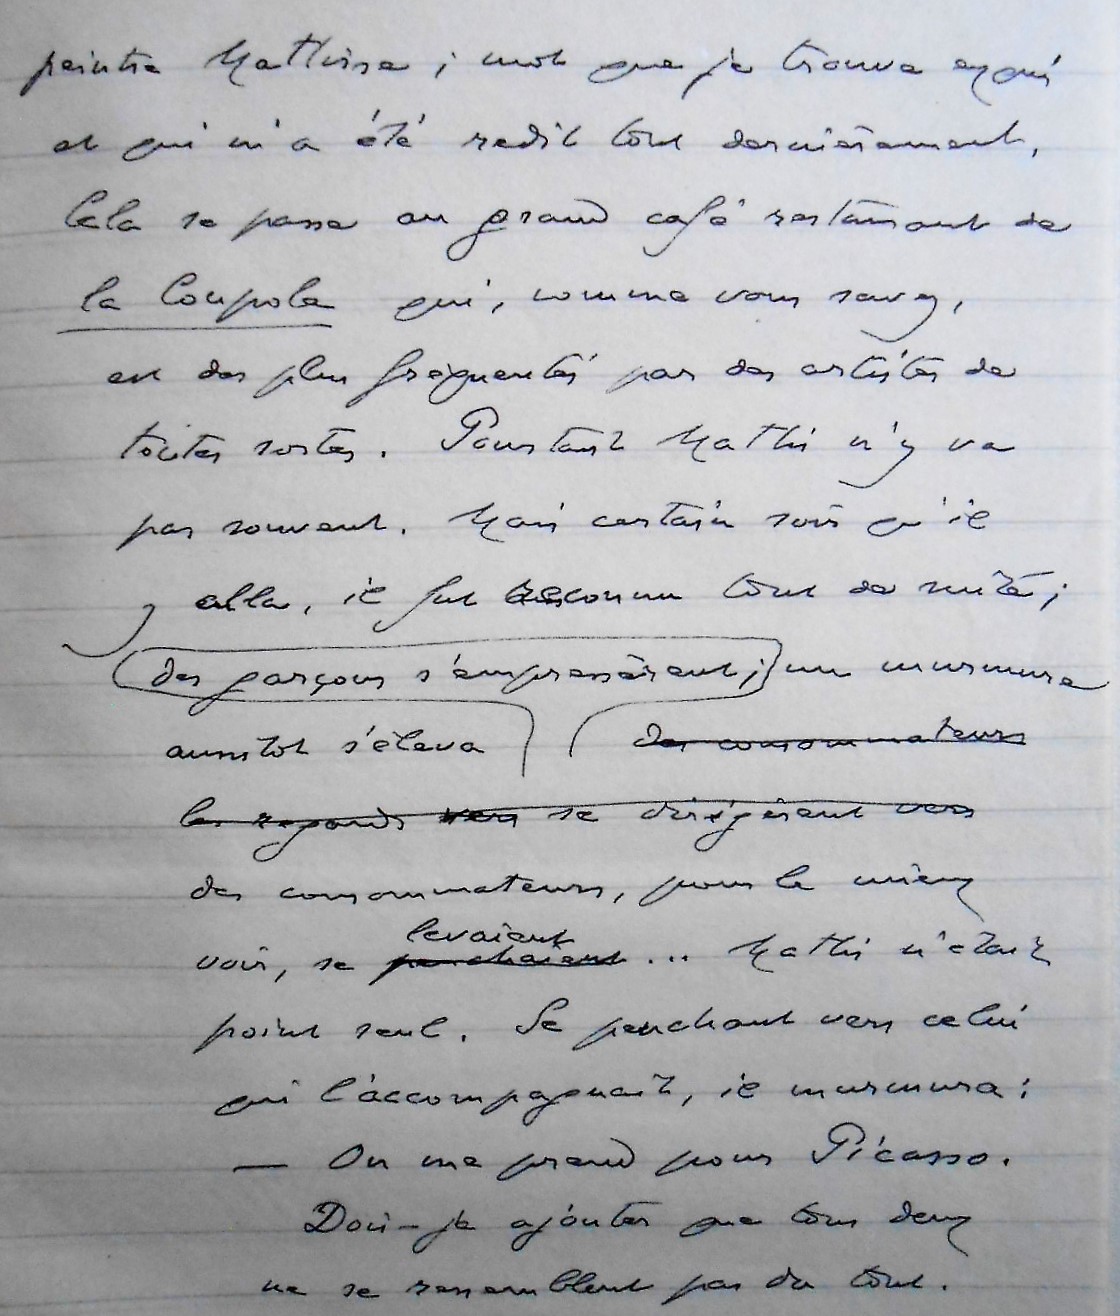 peintre Mathisse ; mot que je trouve exquis
et qui m'a été redit tout dernièrement.
Cela se passe au grand café restaurant de
la Coupole qui, comme vous savez,
est des plus fréquentés par des artistes de
toutes sortes. Pourtant Mathis n'y va
pas souvent. Mais certain soir qu'il
y alla, il fut reconnu tout de suite ;
des garçons s'empressèrent ; un murmure
aussitôt s'éleva des consommateurs
les regards vers se dirigèrent vers
des consommateurs, pour le mieux
levaient
voir, se penchaient ... Mathis n'était
point seul. Se penchant vers celui
qui l'accompagnait, il murmura :
— On me prend pour Picasso.
Dois-je ajouter que tous deux
ne se ressemblent pas du tout.